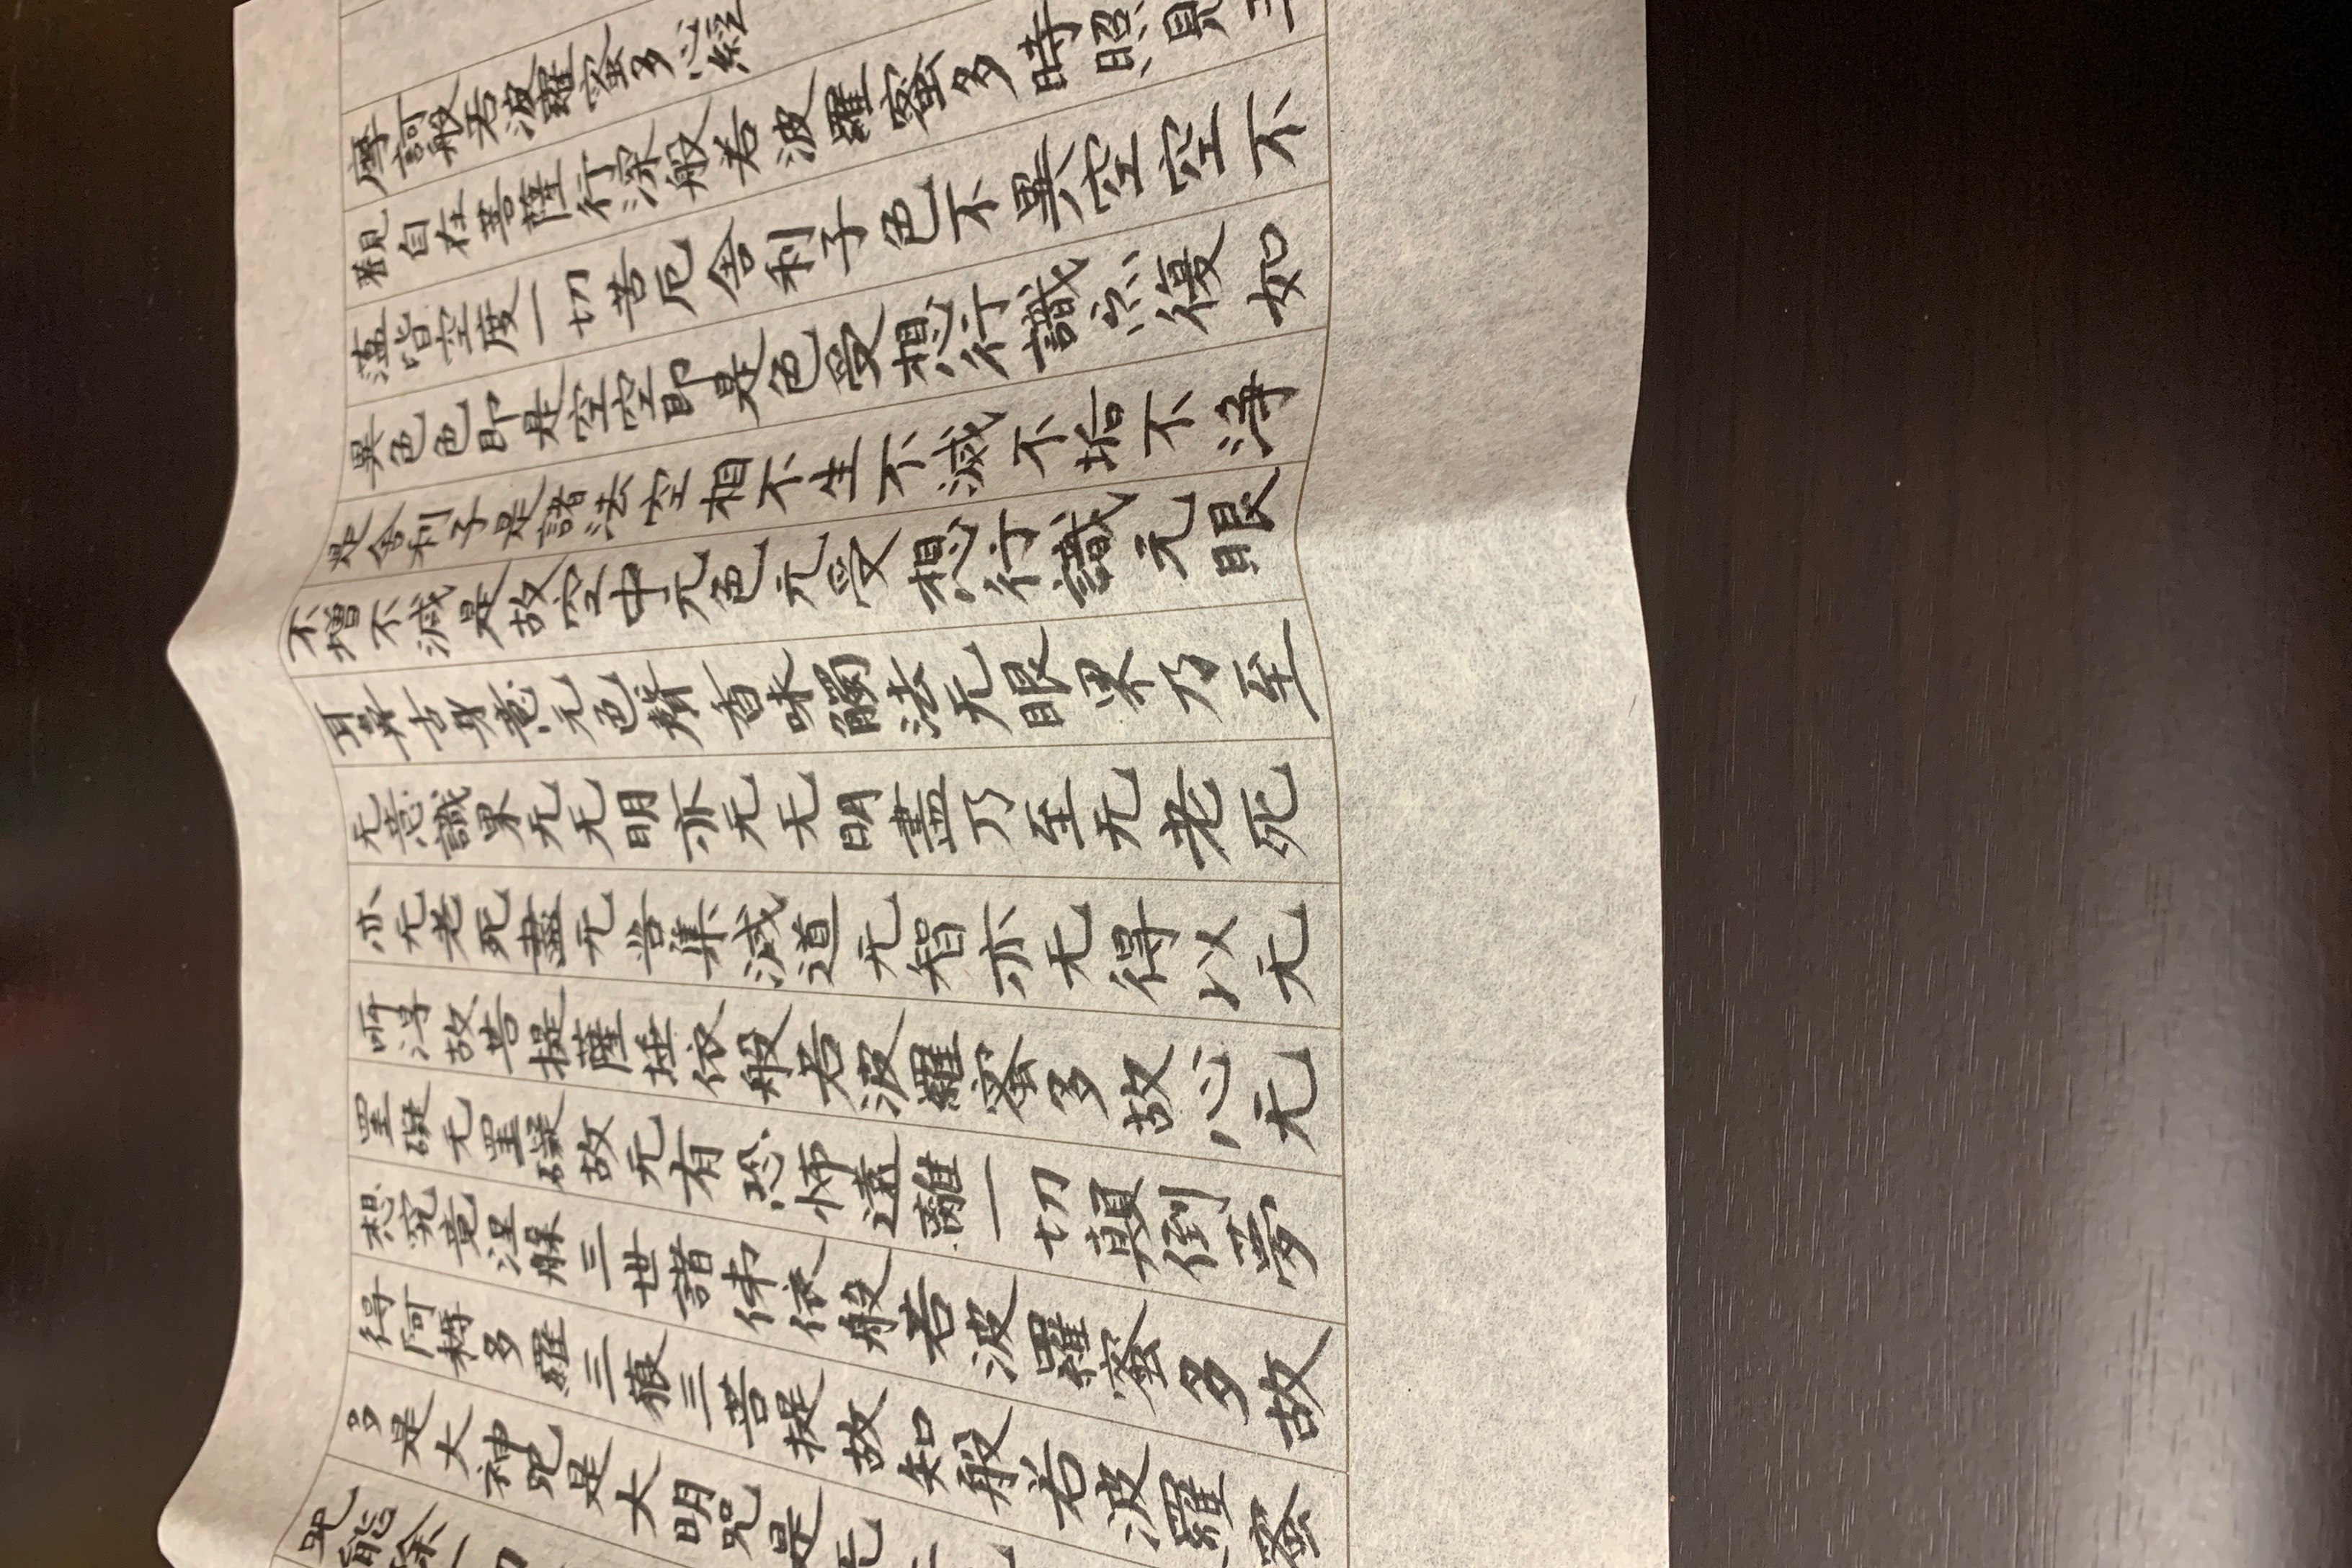 摩訶般若波羅蜜多心経
観自在菩薩行深般若波羅蜜多時照見五
蘊皆空度一切苦厄舎利子色不異空空不
異色色即是空空即是色受想行識亦復如
是舎利子是諸法空相不生不滅不垢不浄
不増不減是故空中无色无受想行識无眼
耳鼻舌身意无色聲香味觸法无眼界乃至
无意識界无无明亦无无明盡乃至无老死
亦无老死盡无苦集滅道无智亦无得以无
所得故菩提薩埵依般若波羅蜜多故心无
罣礙无罣礙故无有恐怖遠離一切顛倒夢
想究竟涅槃三世諸佛依般若波羅蜜多故
得阿耨多羅三藐三菩提故知般若波羅蜜
多是大神咒是大明咒是无
咒能除